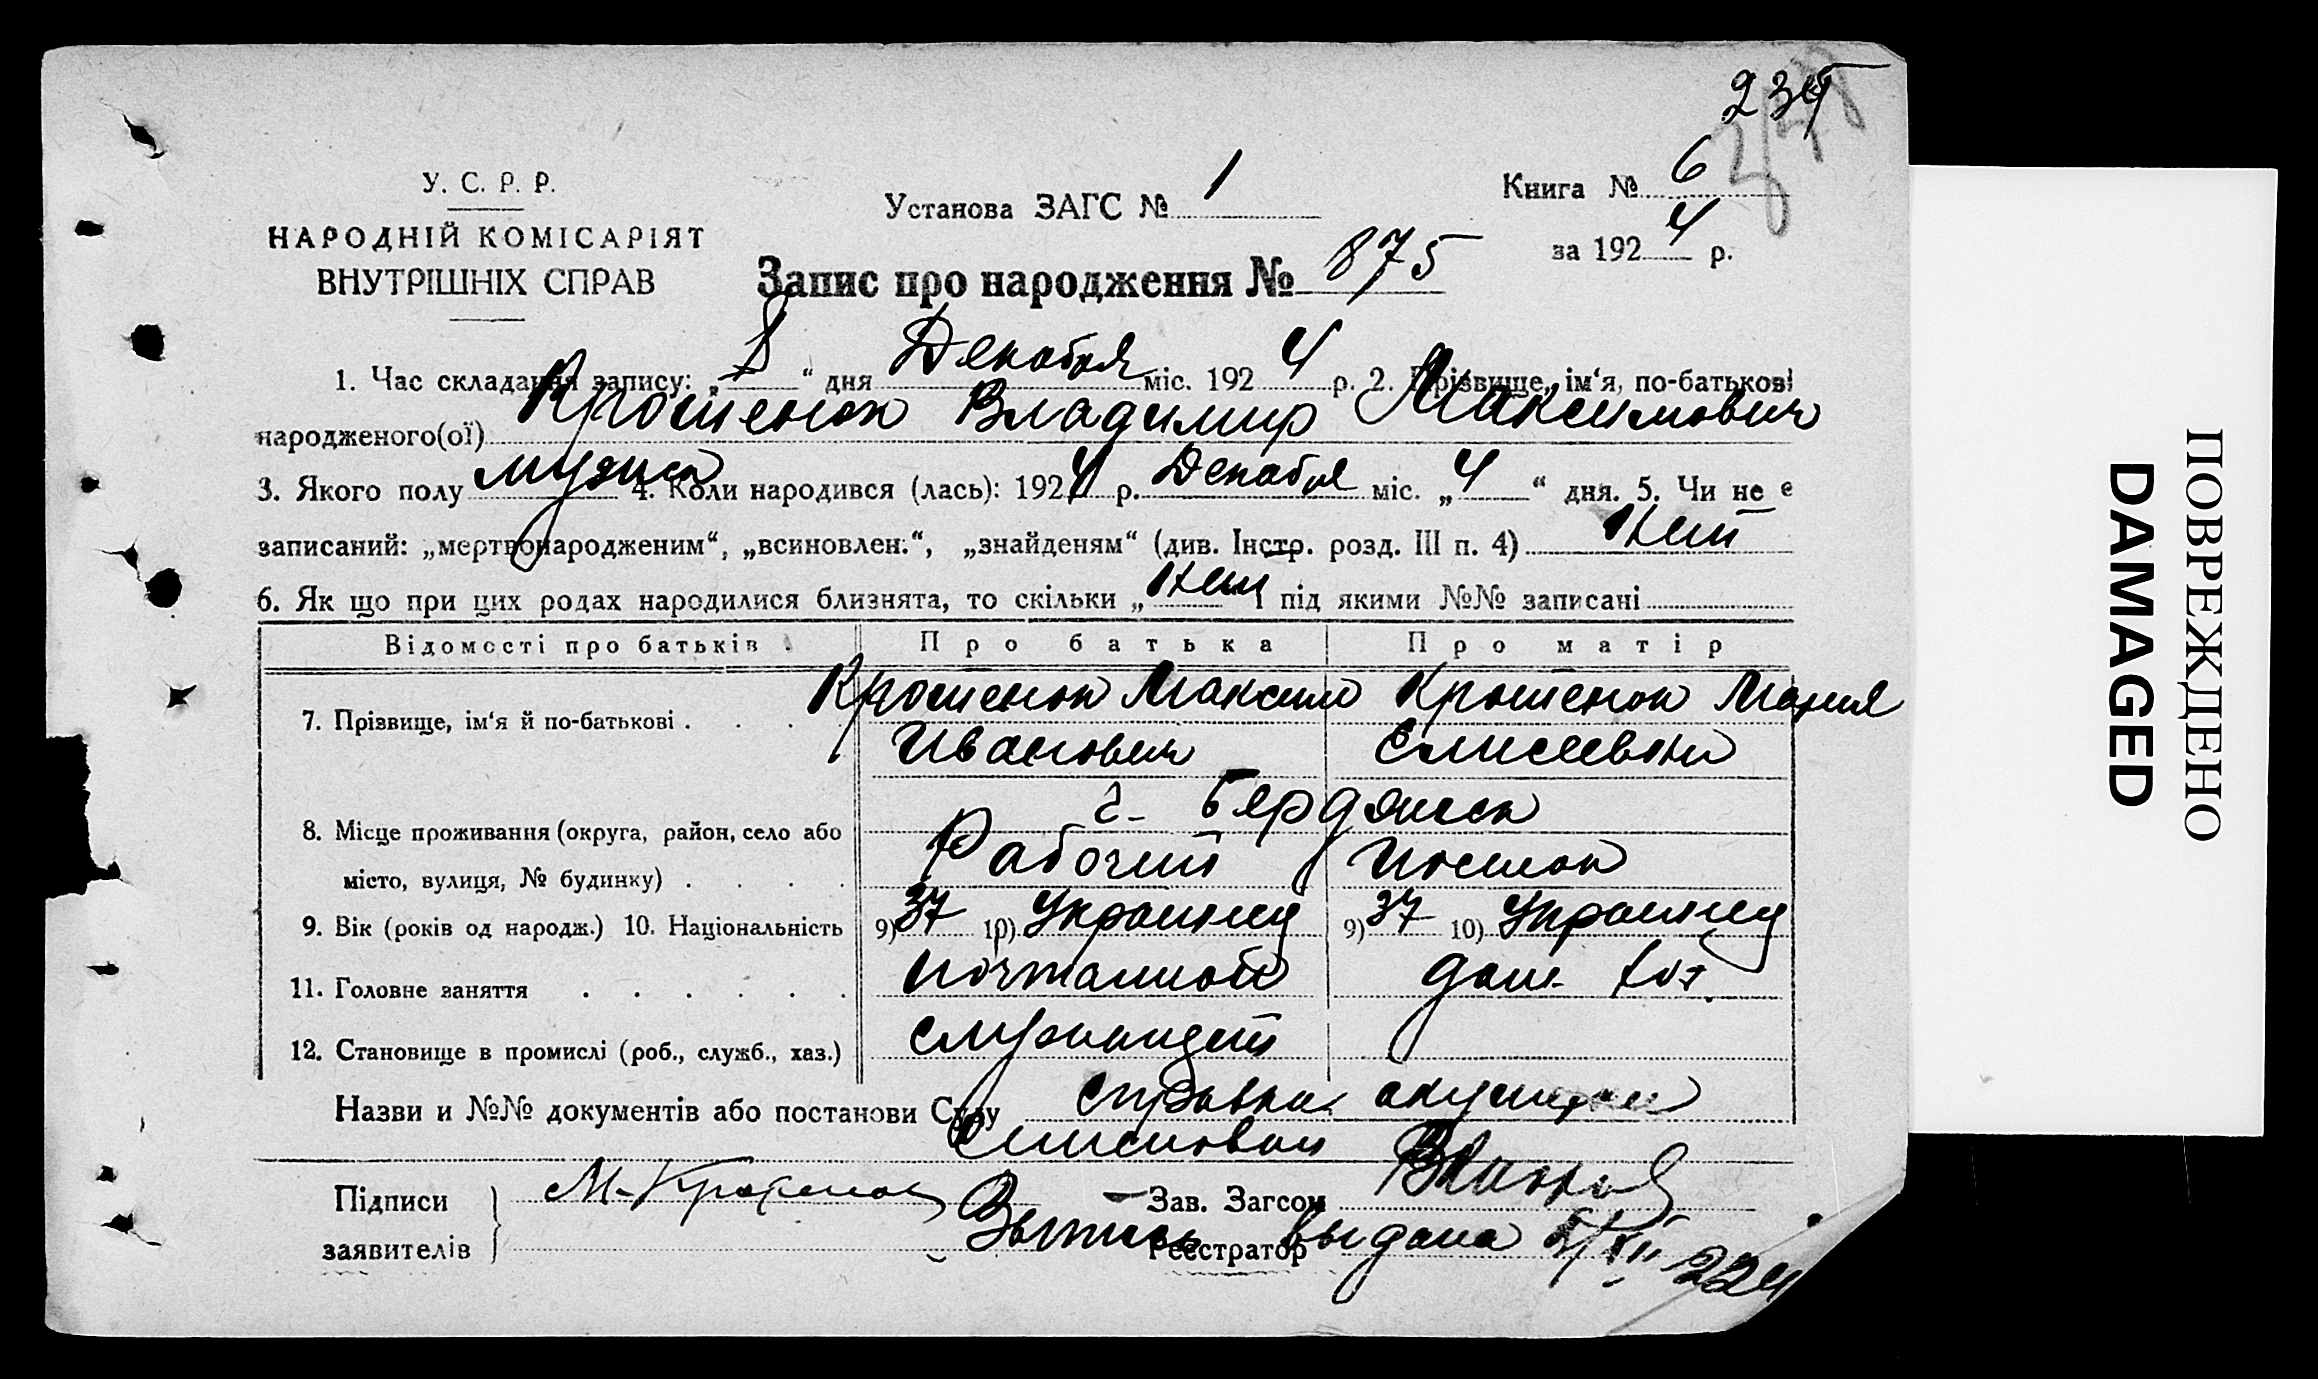 235
У. С. Р. Р.
НАРОДНІЙ КОМІСАРІЯТ
ВНУТРІШНІХ СПРАВ
Установа ЗАГС № 1
Книга № 6
за 1924 р.
Запис про народження № 875
1. Час складання запису: „8“ дня Декабря міс. 1924 р. 2. Прізвище, ім‘я, по-батькові
народженого(ої) Крошенок Владимир Максимович
3. Якого полу мужск 4. Коли народився (лась): 1924 р. Декабря міс. „4“ дня. 5. Чи не є
записаний: „мертвонародженим“, „всиновлен.“, „знайденям“ (див. Інстр. розд. III п. 4) Нет
6. Як що при цих родах народилися близнята, то скільки „Нет і під якими №№ записані
Відомості про батьків Про батька Про матір
7. Прізвище, ім‘я й по-батькові . . . . Крошенок Максим Крошенок Мария
Иванович Елисеевна
г. Бердянск
8. Місце проживання (округа, район, село або
Рабочий Поселок
місто, вулиця, № будинку) . . . .
9. Вік (років од народж.) 10. Національність 9) 37 10) Украинец 9) 37 10) Украинец
11. Головне заняття . . . . . . дом. хоз.
12. Становище в промислі (роб., служб., хаз.) служащий
Назви и №№ документів або постанови Суду Справка акушерки
Підписи
заявителів
М. Крошенок
Зав. Загсом
Реєстратор
Выпись выдана
ПОВРЕЖДЕНО
DAMAGED